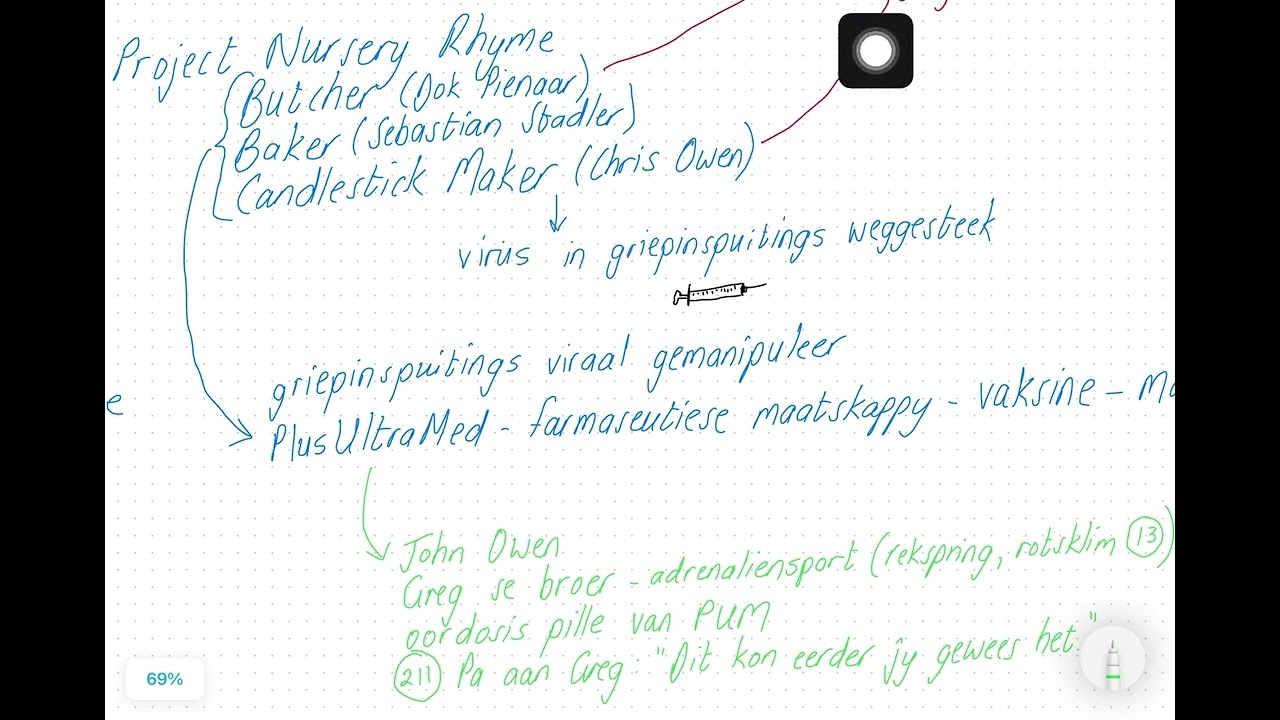 Project Nursery Rhyme
Butcher (Dok Pienaar)
Baker (Sebastian Stadler)
Candlestick Maker (Chris Owen)
virus in griepinspuitings weggesteek
griepinspuitings viraal gemanipuleer
e
PlusUltraMed - farmaseutiese maatskappy - vaksine - Ma
John Owen
Greg se broer - adrenaliensport (rekspring, rotsklim 13)
oordosis pille van PUM
211 Pa aan Greg: "Dit kon eerder jy gewees het."
69%